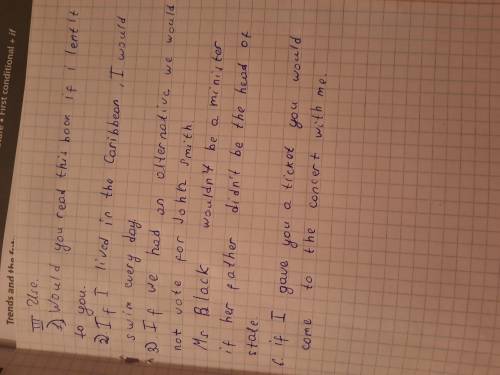 First conditional + if
Trends and the
III Use.
1) Would you read this book if I lent it
to you.
2) If I lived in the Caribbean, I would
swim every day
3) If we had an alternative we would
not vote for John Smith
Ms Black wouldn't be a minister
if her father didn't be the head of
state.
if I gave you a ticket you would
come to the concert with me.